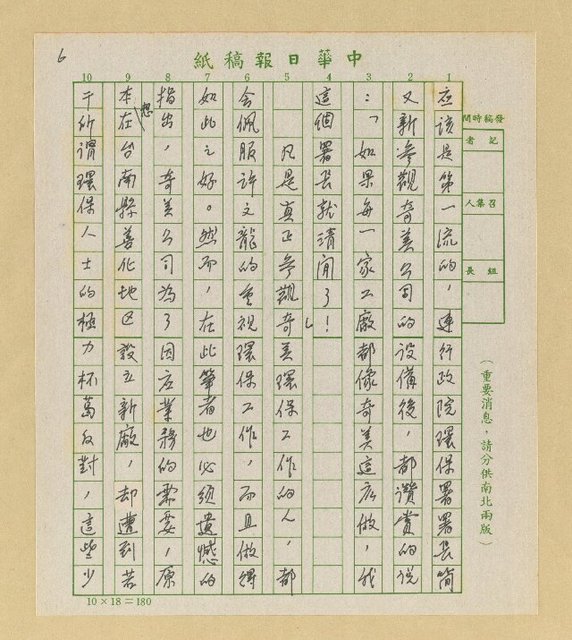 6
中華日報稿紙
發稿時間
記者
召集人
組長
(重要消息，請分供南北兩版)
1 2 3 4 5 6 7 8 9 10
應該是第一流的，連行政院環保署署長簡
又新參觀奇美公司的設備後，都讚賞的說
：「如果每一家工廠都像奇美這麼做，我
這個署長就清閒了！」
凡是真正參觀奇美環保工作的人，都
會佩服許文龍的重視環保工作，而且做得
如此之好。然而，在此筆者也必須遺憾的
指出，奇美公司為了因應業務的需要，原
本想在台南縣善化地區設立新廠，却遭到若
干所謂環保人士的極力杯葛反對，這些少
10×18＝180